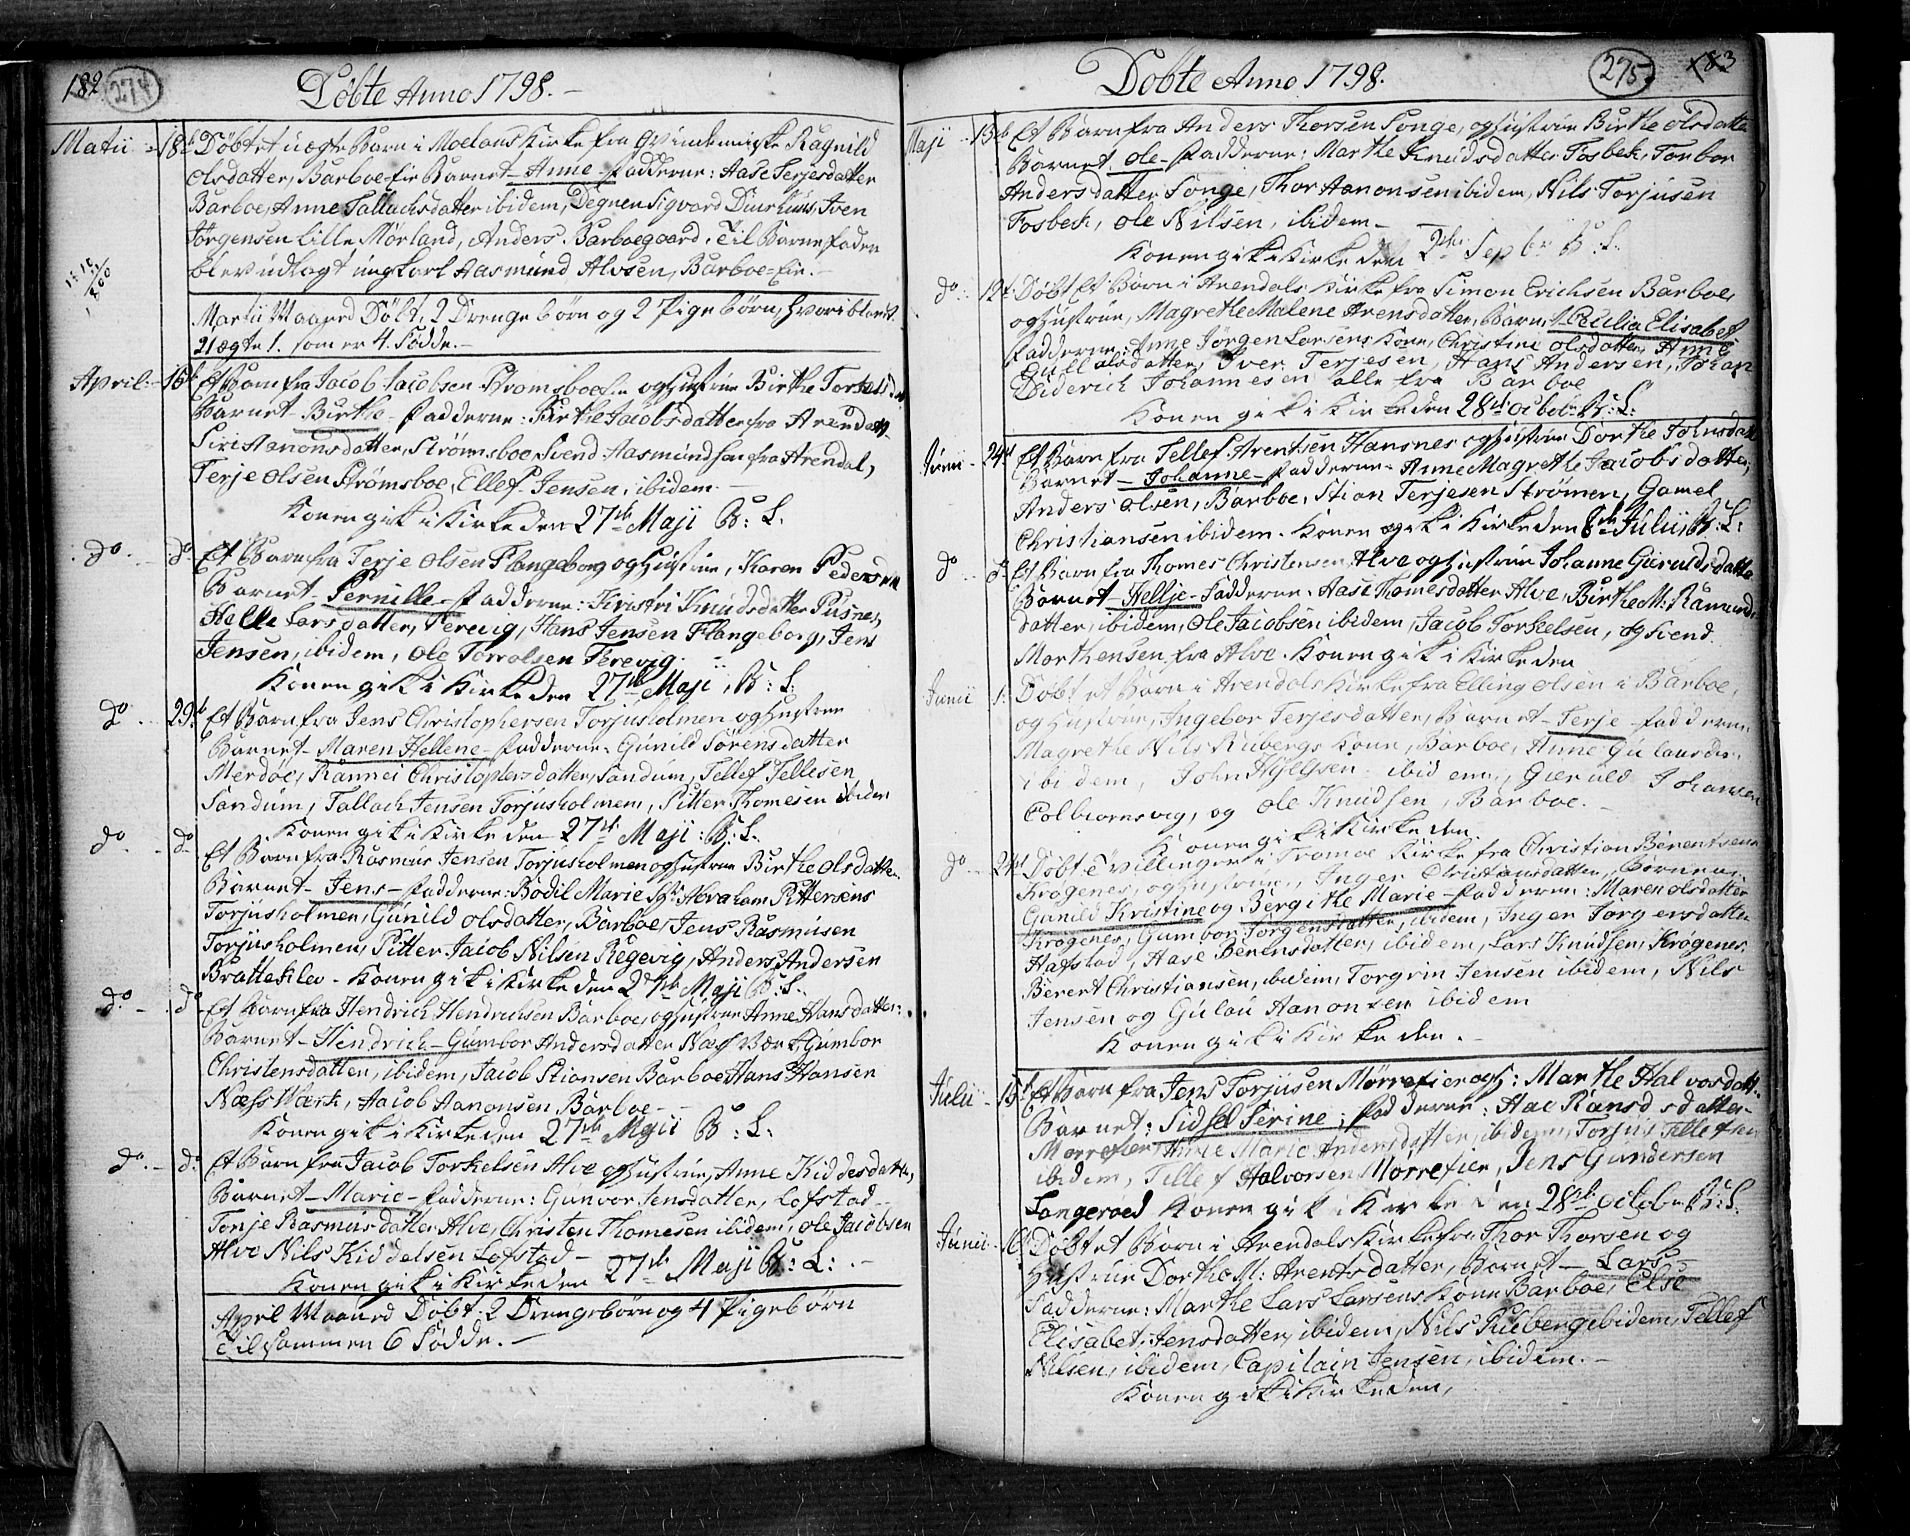 182 274
Döbte Anno 1798.
Matii 18 Döbt et uægte Barn i Moelans Kirke fra Qvindemiske Ragnild
Olsdatter, Barboe-fie Barnet Anne Fadderne: Aase Terjesdatter
Barboe, Anne Tallachsdatter ibidem, Degnen Sigvard Diurhuus, Iven
Jörgensen Lille Mörland, Anders Barboegaard. Til Barnefader
blev udlagt ungkarl Aasmund Alvsen, Barboe-fie.
Martii Maaned Döbt, 2 Drengebörn og 2 Pigebörn, hvoriblandt
Uægte 1. som er 4. Födde.
April 15 Et Barn fra Jacob Jacobsen Strömsboe og Hustrue Birthe Torkelsd.
Barnet Birthe Fadderne: Birthe Jacobsdatter fra Arendal,
Siri Aanonsdatter, Strömsboe, Svend Aasmundsen fra Arendal,
Terje Olsen Strömsboe, Ellef Jensen, ibidem.
Konen gik i Kirke den 27de Maji B: L:
do do Et Barn fra Terje Olsen Flangeborg og Hustrue, Karen Pedersd.
Barnet Pernille Fadderne: Kristri Knudsdatter Pusnes,
Helle Larsdatter, Terevig, Hans Jensen Flangeborg, Jens
Jensen, ibidem, Ole Torvolsen Terevig.
Konen gik i Kirke den 27de Maji, B: L:
do 29 Et Barn fra Jens Christophersen Torjusholmen og Hustrue
Barnet Maren Hellene Fadderne: Gunild Sörensdatter
Merdöe, Rannei Christophersdatter, Sandum, Tellef Tellesen,
Sandum, Tallach Jensen Torjusholmen, Pitter Thomesen ibidem
Konen gik i Kirke den 27de Maji: B: L:
do do Et Barn fra Rasmus Jensen Torjusholmen og Hustrue Birthe Olsdatter
Barnet Jens Fadderne: Bodil Marie Abraham Pittersens
Torjusholmen, Gunild Olsdatter, Barboe, Jens Rasmusen
Torjusholmen, Pitter Jacob Nilsen Regevig, Anders Andersen
Bratteklev. Konen gik i Kirke den 27de Maji B: L:
do do Et Barn fra Hendrich Hendrichsen Barboe, og Hustrue Anne Hansdatter:
Barnet Hendrich Gumbor Andersdatter Næs Værk Gumbor
Christensdatter, ibidem, Jacob Stiansen Barboe Hans Hansen
Næss Wærk, Jacob Aanonsen Barboe
Konen gik i Kirke den 27de Maji B: L:
do do Et Barn fra Jacob Torkelsen Alve og Hustrue, Anne Kiddesdatter,
Barnet Marie Fadderne: Gunvor Jensdatter, Lofstad
Tonje Rasmusdatter Alve, Christen Thomesen ibidem, Ole Jacobsen
Alve Nils Kiddelsen Lofstad
Konen gik i Kirke den 27de Maji B: L:
April Maaned Döbt 2 Drengebörn og 4 Pigebörn
Tilsammen 6 Födde.
275 183
Döbte Anno 1798.
Maji 13 Et Barn fra Anders Thorsen Songe, og Hustrue Birthe Olsdatter
Barnet Ole Fadderne: Marthe Knudsdatter Fosbek, Torbor
Andersdatter Songe, Thor Aanonsen ibidem, Nils Torjusen
Fosbek, Ole Nilsen, ibidem
Konen gik i Kirke den 2den Septbr B: L:
do 12 Döbt Et Barn i Arendals Kirke fra Simon Erichsen Barboe,
og Hustrue, Magrethe Malene Arensdatter, Barnet Cicilia Elisabet
Fadderne: Anne Jörgen Larsens Kone, Christine Olsdatter, Anne
Gu Olsdatter, Iver Terjesen, Hans Andersen, Johan
Diderich Johannesen alle fra Barboe
Konen gik i Kirke den 28de October B: L:
Junii 24 Et Barn fra Tellef Arentsen Hansnes og Hustrue Dorthe Johnsdatter
Barnet Johanne Fadderne Anne Magrethe Jacobsdatter,
Anders Olsen, Barboe, Stian Terjesen Strömen, Gamel
Christiansen ibidem. Konen gik i Kirke den 8de Julii B: L:
do do Et Barn fra Thomes Christensen Alve og Hustrue Johanne Guruldsdatter
Barnet Hellje Fadderne Aase Thomesdatter Alve, Birthe M: Ramunds
datter, ibidem, Ole Jacobsen ibidem, Jacob Torkelsen, og Svend
Morthensen fra Alve. Konen gik i Kirke den
Junii 1. Döbt et Barn i Arendals Kirke fra Elling Olsen i Barboe,
og Hustrue, Ingebor Terjesdatter, Barnet Terje Fadderne
Magrethe Nils Rubergs Kone, Barboe, Anne Gulausdr.
ibidem, John ibidem, Gieruld Johansen
Colbiornsvig, og Ole Knudsen, Barboe.
Konen gik i Kirke den
do 24 Döbt Tvillinger i Tromöe Kirke fra Christian Berentsen
Krögenes, og Hustrue, Inger Christiansdatter, Börnene
Gunild Kristine og Bergithe Marie Fadderne: Maren Olsdatter
Krögenes, Gumbor Jörgensdatter, ibidem, Inger Jörgensdatter
Hafstad, Aase Berensdatter, ibidem, Lars Knudsen, Krögenes
Berent Christiansen, ibidem, Torgrim Jensen ibidem, Nils
Jensen og Gulau Aanonsen ibidem
Konen gik i Kirke den.
Julii 15 Et Barn fra Jens Torjusen Mörrefier og H: Marthe Halvorsdatt.
Barnet: Sidsel Serine; Fadderne: Aae Ransdsdatter
Morrefier Anne Marie Andersdatter, ibidem, Torjus Tellefsen
ibidem, Tellef Halvorsen Morrefier, Jens Gundersen
Langeröed Konen gik i Kirke den 28de October B: L.
Junii 6 Döbt et Barn i Arendals Kirke fra Thor Thorsen og
Hustrue Dorthe M: Arentsdatter, Barnet Lars
Fadderne: Marthe Lars Larsens Kone Barboe, Else
Elisabet Jensdatter, ibidem, Nils Ruberg ibidem, Tellef
Nilsen, ibidem, Capitain Jensen, ibidem.
Konen gik i Kirke den,